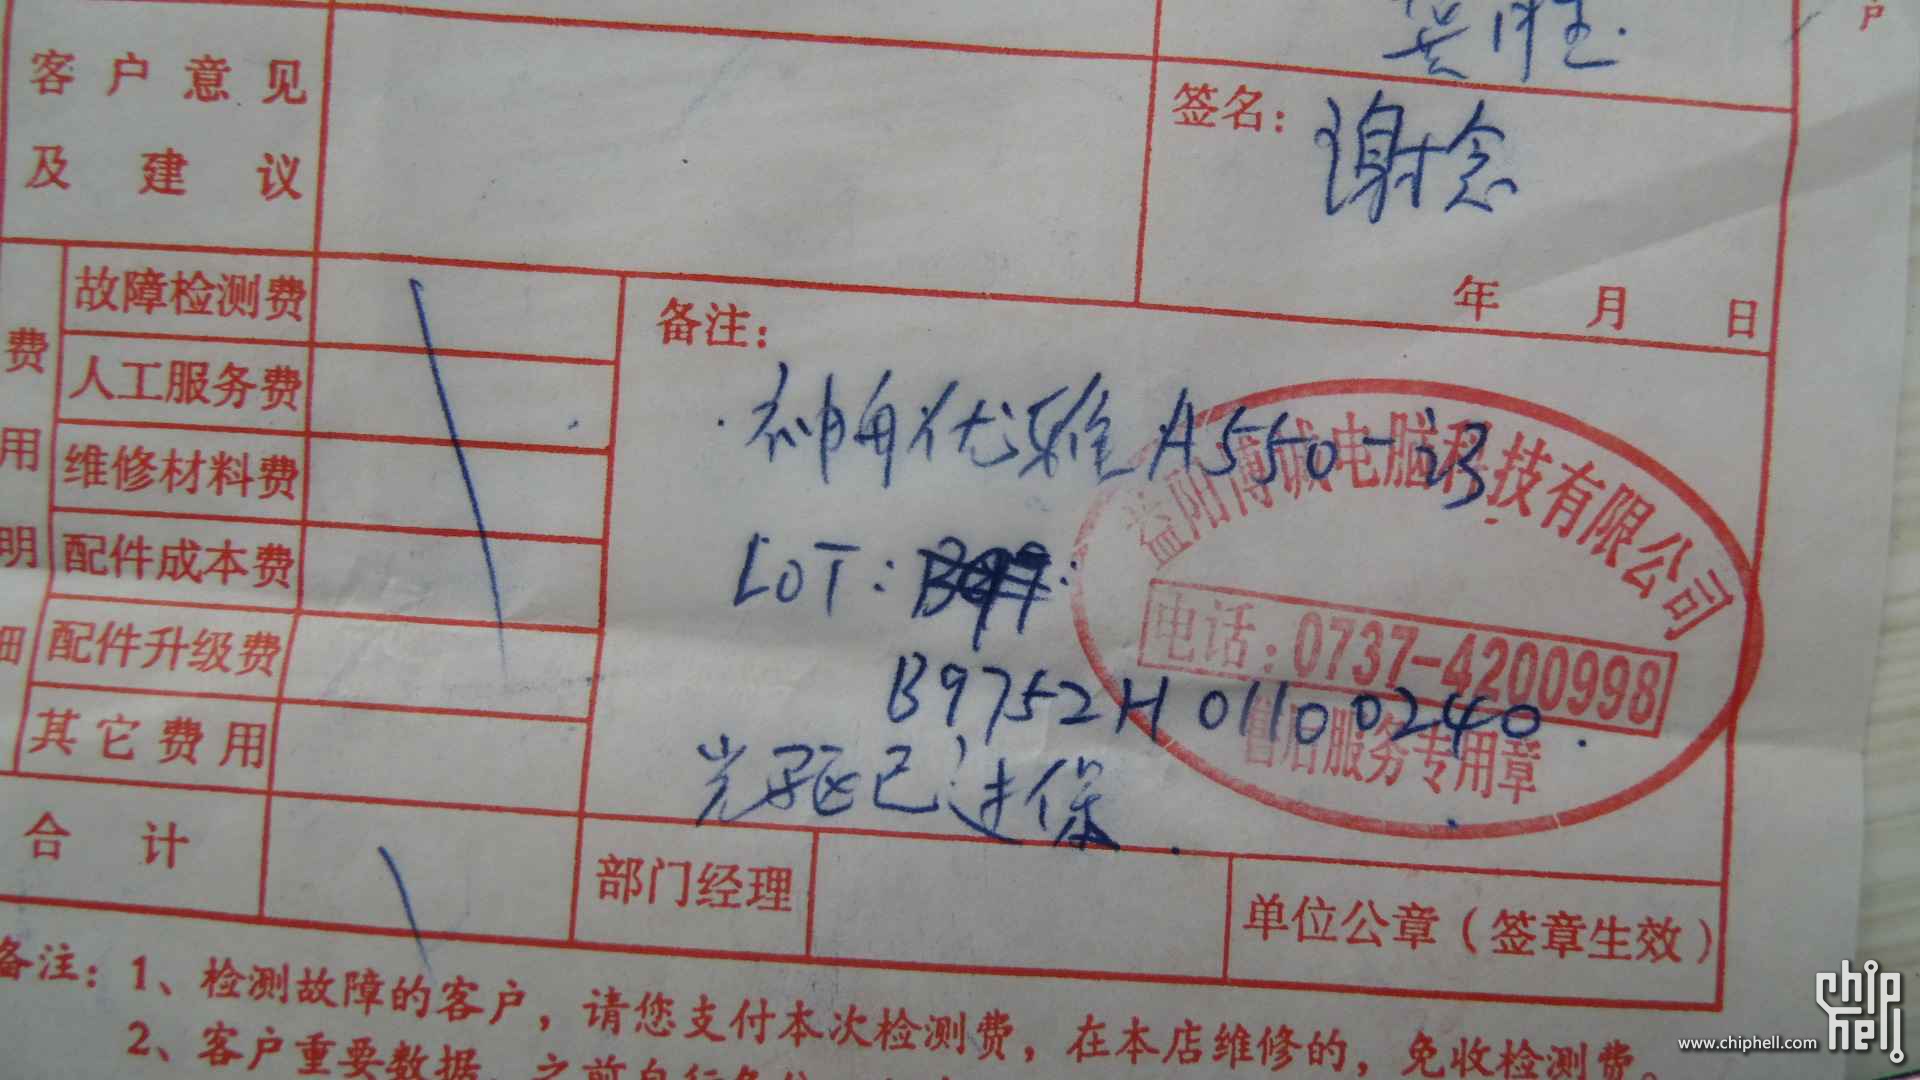 户
客户意见
及建议
签名：
谢念
年 月 日
费用明细
故障检测费
人工服务费
维修材料费
配件成本费
配件升级费
其它费用
合计
备注：
神舟优雅A550-i3
LOT：
B9752H01100240.
光驱已过保.
益阳博诚电脑科技有限公司
电话：0737-4200998
售后服务专用章
部门经理
单位公章（签章生效）
备注：1、检测故障的客户，请您支付本次检测费，在本店维修的，免收检测费。
2、客户重要数据
chip
hell
www.chiphell.com